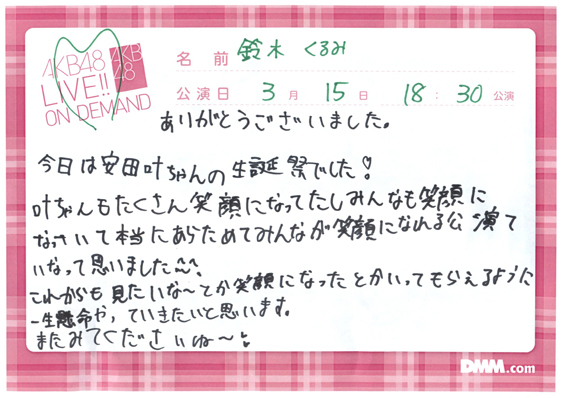 AKB48
LIVE!!
ON DEMAND
AKB
48
名前 鈴木 くるみ
公演日 3月 15日 18:30 公演
ありがとうございました。
今日は安田叶ちゃんの生誕祭でした!
叶ちゃんもたくさん笑顔になってたしみんなも笑顔に
なっていて本当にあらためてみんなが笑顔になれる公演で
いなって思いました
これからも見たいな〜とか笑顔になったとかいってもらえるように
一生懸命やっていきたいと思います。
またみてくださいね〜
DMM.com